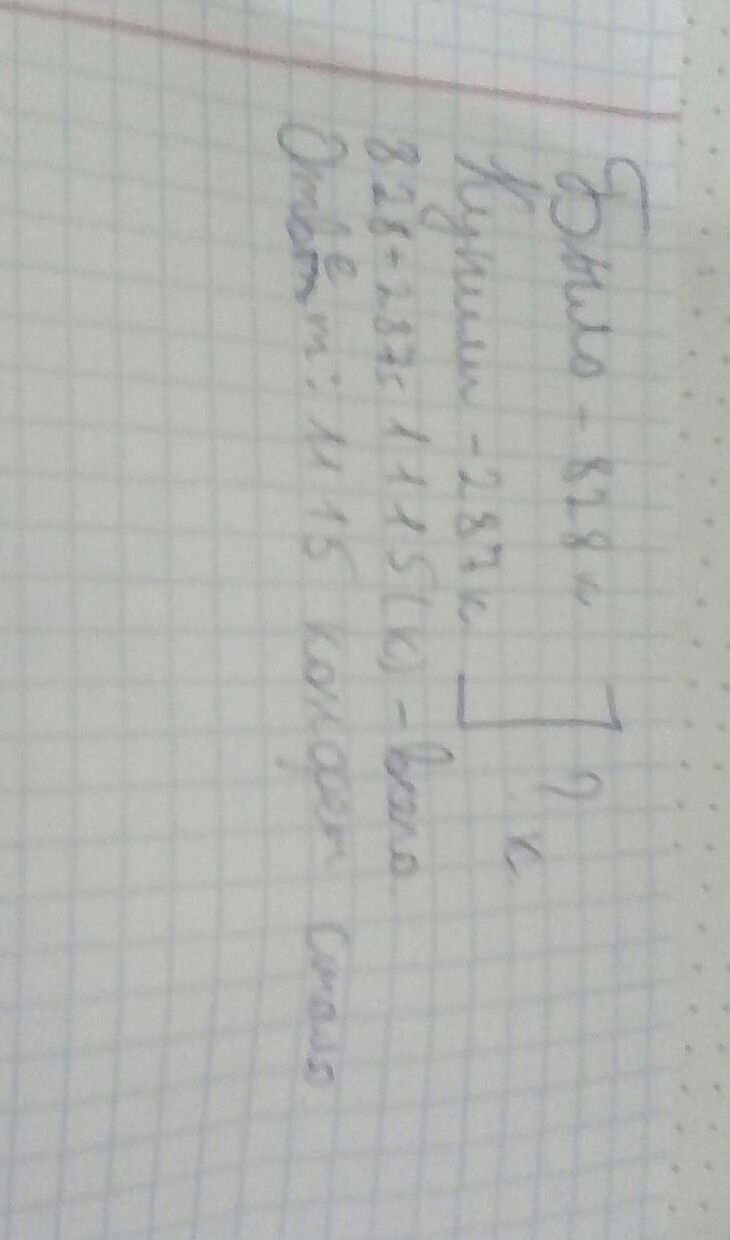 Было - 828 к ] ? к
Купили - 287 к
828+287=1115(к) - всего
Ответ: 1115 конфет стало